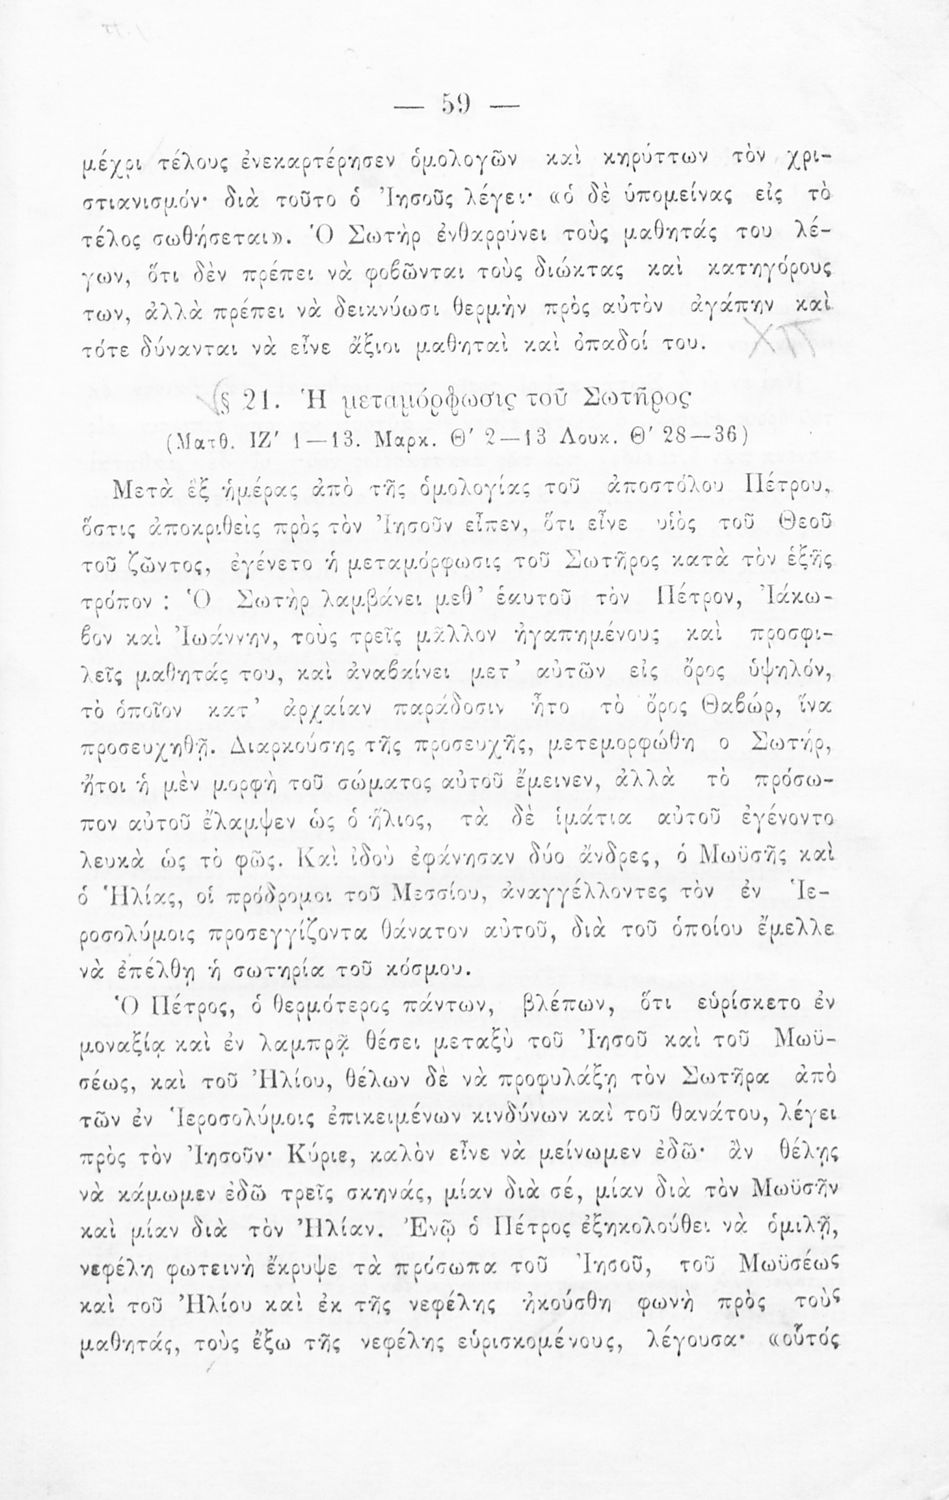 — 59 —
μέχρι τέλους ἐνεκαρτέρησεν ὁμολογῶν καὶ κηρύττων τὸν χρι-
στιανισμόν· διὰ τοῦτο ὁ Ἰησοῦς λέγει· «ὁ δὲ ὑπομείνας εἰς τὸ
τέλος σωθήσεται». Ὁ Σωτὴρ ἐνθαρρύνει τοὺς μαθητάς του λέ-
γων, ὅτι δὲν πρέπει νὰ φοβῶνται τοὺς διώκτας καὶ κατηγόρους
των, ἀλλὰ πρέπει νὰ δεικνύωσι θερμὴν πρὸς αὐτὸν ἀγάπην καὶ
τότε δύνανται νὰ εἶνε ἄξιοι μαθηταὶ καὶ ὀπαδοί του.
§ 21. Ἡ μεταμόρφωσις τοῦ Σωτῆρος
(Ματθ. ΙΖ′ 1—13. Μαρκ. Θ′ 2—13 Λουκ. Θ′ 28—36)
Μετὰ ἓξ ἡμέρας ἀπὸ τῆς ὁμολογίας τοῦ ἀποστόλου Πέτρου,
ὅστις ἀποκριθεὶς πρὸς τὸν Ἰησοῦν εἶπεν, ὅτι εἶνε υἱὸς τοῦ Θεοῦ
τοῦ ζῶντος, ἐγένετο ἡ μεταμόρφωσις τοῦ Σωτῆρος κατὰ τὸν ἑξῆς
τρόπον : Ὁ Σωτὴρ λαμβάνει μεθ’ ἑαυτοῦ τὸν Πέτρον, Ἰάκω-
βον καὶ Ἰωάννην, τοὺς τρεῖς μᾶλλον ἠγαπημένους καὶ προσφι-
λεῖς μαθητάς του, καὶ ἀναβαίνει μετ’ αὐτῶν εἰς ὄρος ὑψηλόν,
τὸ ὁποῖον κατ’ ἀρχαίαν παράδοσιν ἦτο τὸ ὄρος Θαβώρ, ἵνα
προσευχηθῇ. Διαρκούσης τῆς προσευχῆς, μετεμορφώθη ο Σωτήρ,
ἤτοι ἡ μὲν μορφὴ τοῦ σώματος αὐτοῦ ἔμεινεν, ἀλλὰ τὸ πρόσω-
πον αὐτοῦ ἔλαμψεν ὡς ὁ ἥλιος, τὰ δὲ ἱμάτια αὐτοῦ ἐγένοντο
λευκὰ ὡς τὸ φῶς. Καὶ ἰδοὺ ἐφάνησαν δύο ἄνδρες, ὁ Μωϋσῆς καὶ
ὁ Ἠλίας, οἱ πρόδρομοι τοῦ Μεσσίου, ἀναγγέλλοντες τὸν ἐν Ἱε-
ροσολύμοις προσεγγίζοντα θάνατον αὐτοῦ, διὰ τοῦ ὁποίου ἔμελλε
νὰ ἐπέλθῃ ἡ σωτηρία τοῦ κόσμου.
Ὁ Πέτρος, ὁ θερμότερος πάντων, βλέπων, ὅτι εὑρίσκετο ἐν
μοναξίᾳ καὶ ἐν λαμπρᾷ θέσει μεταξὺ τοῦ Ἰησοῦ καὶ τοῦ Μωϋ-
σέως, καὶ τοῦ Ἠλίου, θέλων δὲ νὰ προφυλάξῃ τὸν Σωτῆρα ἀπὸ
τῶν ἐν Ἱεροσολύμοις ἐπικειμένων κινδύνων καὶ τοῦ θανάτου, λέγει
πρὸς τὸν Ἰησοῦν· Κύριε, καλὸν εἶνε νὰ μείνωμεν ἐδῶ· ἂν θέλῃς
νὰ κάμωμεν ἐδῶ τρεῖς σκηνάς, μίαν διὰ σέ, μίαν διὰ τὸν Μωϋσῆν
καὶ μίαν διὰ τὸν Ἠλίαν. Ἐνῷ ὁ Πέτρος ἐξηκολούθει νὰ ὁμιλῇ,
νεφέλη φωτεινὴ ἔκρυψε τὰ πρόσωπα τοῦ Ἰησοῦ, τοῦ Μωϋσέως
καὶ τοῦ Ἠλίου καὶ ἐκ τῆς νεφέλης ἠκούσθη φωνὴ πρὸς τοὺς
μαθητάς, τοὺς ἔξω τῆς νεφέλης εὑρισκομένους, λέγουσα· «οὗτός